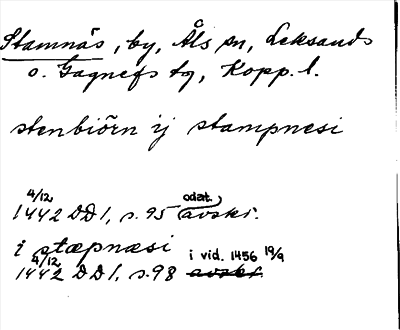 Stamnäs, by, Åls sn, Leksands
o. Gagnefs tg, Kopp. l.
stenbiörn ij stampnesi
4/12 odat.
1442 DD 1, s. 95 avskr.
i stæpnæsi
4/12 i vid. 1456 19/9
1442 DD 1, s. 98 avskr.